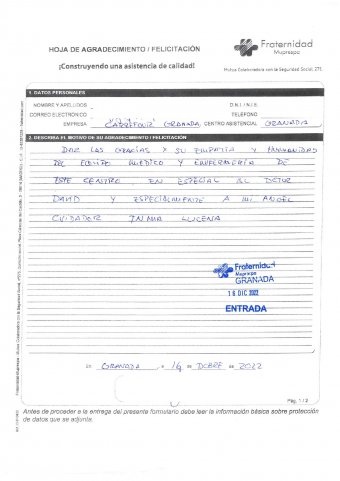 HOJA DE AGRADECIMIENTO / FELICITACIÓN
¡Construyendo una asistencia de calidad!
Fraternidad
Muprespa
Mutua Colaboradora con la Seguridad Social, 275
1. DATOS PERSONALES
NOMBRE Y APELLIDOS
D.N.I. / N.I.E.
CORREO ELECTRÓNICO
TELÉFONO
EMPRESA CARREFOUR GRANADA CENTRO ASISTENCIAL GRANADA
2. DESCRIBA EL MOTIVO DE SU AGRADECIMIENTO / FELICITACIÓN
DAR LAS GRACIAS X SU EMPATIA Y HUMANIDAD
DEL EQUIPO MEDICO Y ENFERMERIA DE
ESTE CENTRO EN ESPECIAL AL DCTOR
DAVID Y ESPECIALMENTE A MI ANGEL
CUIDADOR INMA LUCENA
Fraternidad
Muprespa
GRANADA
16 DIC 2022
ENTRADA
En GRANADA, a 14 de DCBRE de 2022
Pág. 1 / 2
Antes de proceder a la entrega del presente formulario debe leer la información básica sobre protección
de datos que se adjunta.